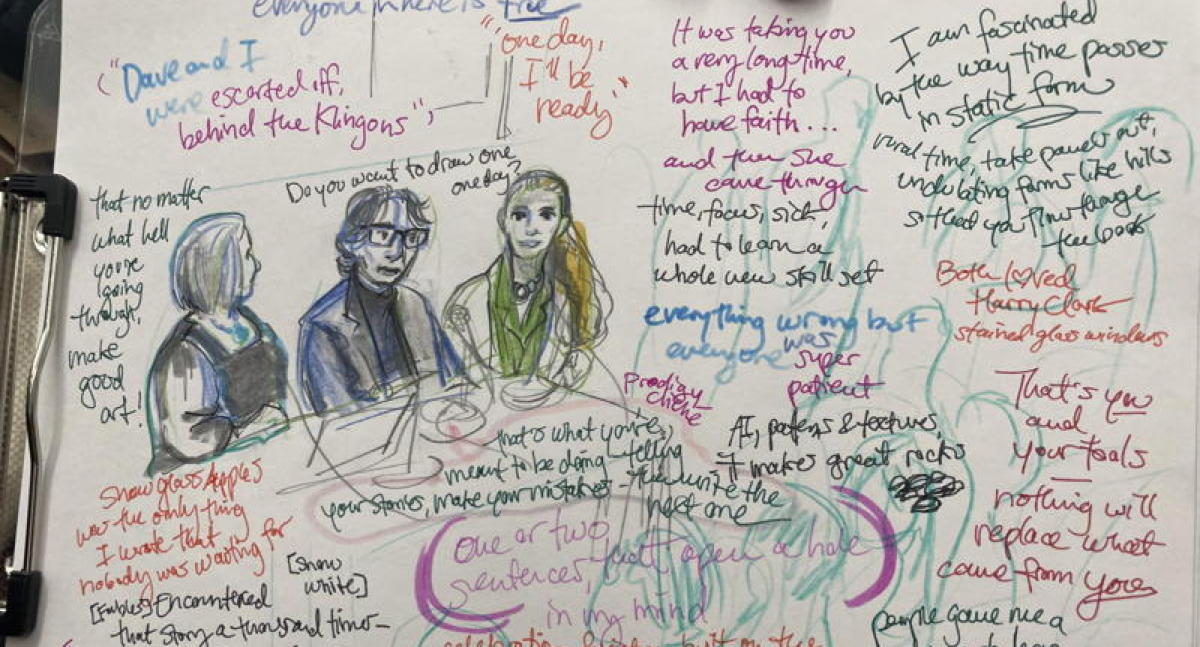 everyone here is free
("Dave and I
were escorted off,
behind the Klingons";
"one day,
I'll be
ready"
It was taking you
a very long time,
but I had to
have faith...
and then she
came through
time, focus, sick,
had to learn a
whole new skill set
I am fascinated
by the way time passes
in static form
time, take panels out,
undulating forms like hills
so that you flow through
the book
Both loved
Harry Clark
stained glass windows
that no matter
what hell
you're
going
through,
make
good
art!
Do you want to draw one
one day?
everything wrong but
everyone was
super
patient
Prodigy
cliche
AI, patterns & textures,
it makes great rocks
That's you
and
your tools
nothing will
replace what
came from you
that's what you're
meant to be doing - telling
your stories, make your mistakes - then write the
next one
Snow Glass Apples
was the only thing
I wrote that
nobody was waiting for
[Snow
White]
[Fables] Encountered
that story a thousand times -
one or two
sentences, that open a hole
in my mind
people gave me a
celebration
built on the